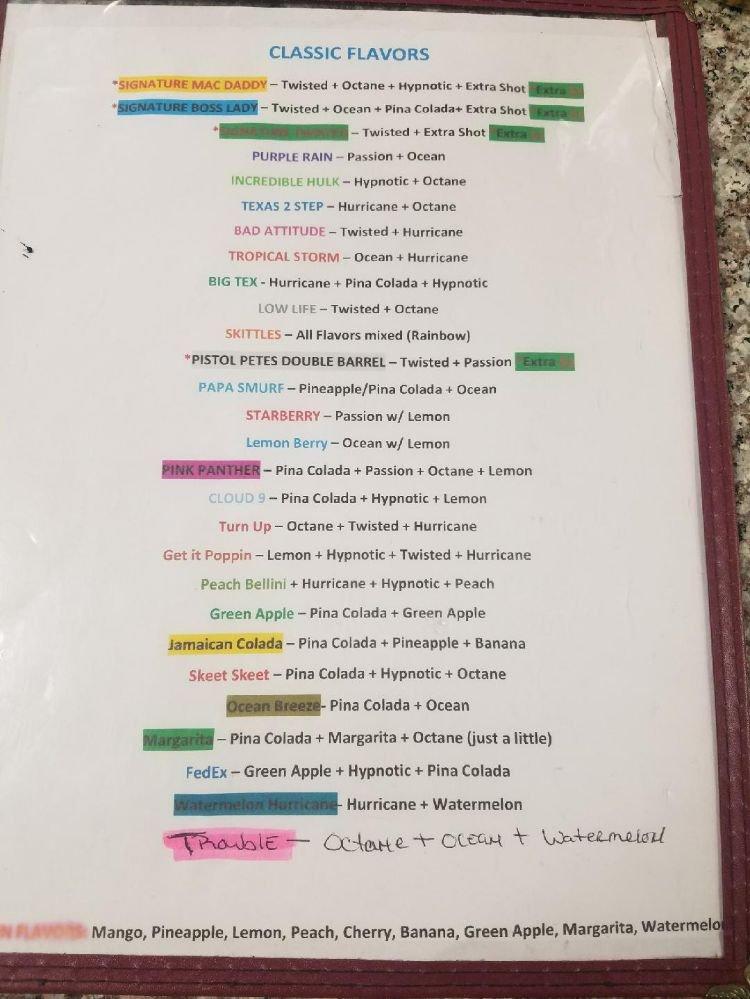 CLASSIC FLAVORS
*SIGNATURE MAC DADDY – Twisted + Octane + Hypnotic + Extra Shot Extra
*SIGNATURE BOSS LADY – Twisted + Ocean + Pina Colada+ Extra Shot Extra
*SIGNATURE TWISTED – Twisted + Extra Shot Extra
PURPLE RAIN – Passion + Ocean
INCREDIBLE HULK – Hypnotic + Octane
TEXAS 2 STEP – Hurricane + Octane
BAD ATTITUDE – Twisted + Hurricane
TROPICAL STORM – Ocean + Hurricane
BIG TEX - Hurricane + Pina Colada + Hypnotic
LOW LIFE – Twisted + Octane
SKITTLES – All Flavors mixed (Rainbow)
*PISTOL PETES DOUBLE BARREL – Twisted + Passion Extra
PAPA SMURF – Pineapple/Pina Colada + Ocean
STARBERRY – Passion w/ Lemon
Lemon Berry – Ocean w/ Lemon
PINK PANTHER – Pina Colada + Passion + Octane + Lemon
CLOUD 9 – Pina Colada + Hypnotic + Lemon
Turn Up – Octane + Twisted + Hurricane
Get it Poppin – Lemon + Hypnotic + Twisted + Hurricane
Peach Bellini + Hurricane + Hypnotic + Peach
Green Apple – Pina Colada + Green Apple
Jamaican Colada – Pina Colada + Pineapple + Banana
Skeet Skeet – Pina Colada + Hypnotic + Octane
Ocean Breeze- Pina Colada + Ocean
Margarita – Pina Colada + Margarita + Octane (just a little)
FedEx – Green Apple + Hypnotic + Pina Colada
Watermelon Hurricane- Hurricane + Watermelon
TRoublE – Octane + OCEAN + Watermelon
N FLAVORS: Mango, Pineapple, Lemon, Peach, Cherry, Banana, Green Apple, Margarita, Watermelo